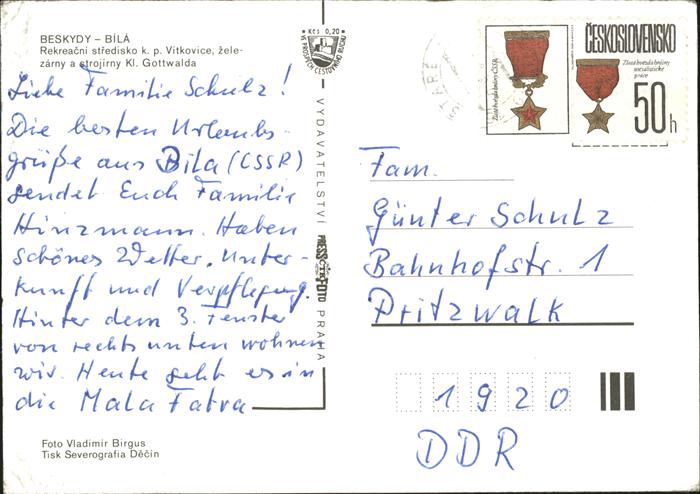 BESKYDY – BÍLÁ
Rekreační středisko k. p. Vítkovice, žele-
zárny a strojírny Kl. Gottwalda
Liebe Familie Schulz!
Die besten Urlaubs-
grüße aus Bila (CSSR)
sendet Euch Familie
Hinzmann. Haben
schönes Wetter, Unter-
kunft und Verpflegung.
Hinter dem 3. Fenster
von rechts unten wohnen
wir. Heute geht es in
die Mala Fatra
Foto Vladimír Birgus
Tisk Severografia Děčín
Kčs 0,20
VE PROSPĚCH CESTOVNÍHO RUCHU
VYDAVATELSTVÍ PRESSFOTO PRAHA
ČTK
Zlatá hvězda hrdiny ČSSR
ČESKOSLOVENSKO
Zlatá hvězda hrdiny
socialistické
práce
50h
Fam.
Günter Schulz
Bahnhofstr. 1
Pritzwalk
1920
DDR